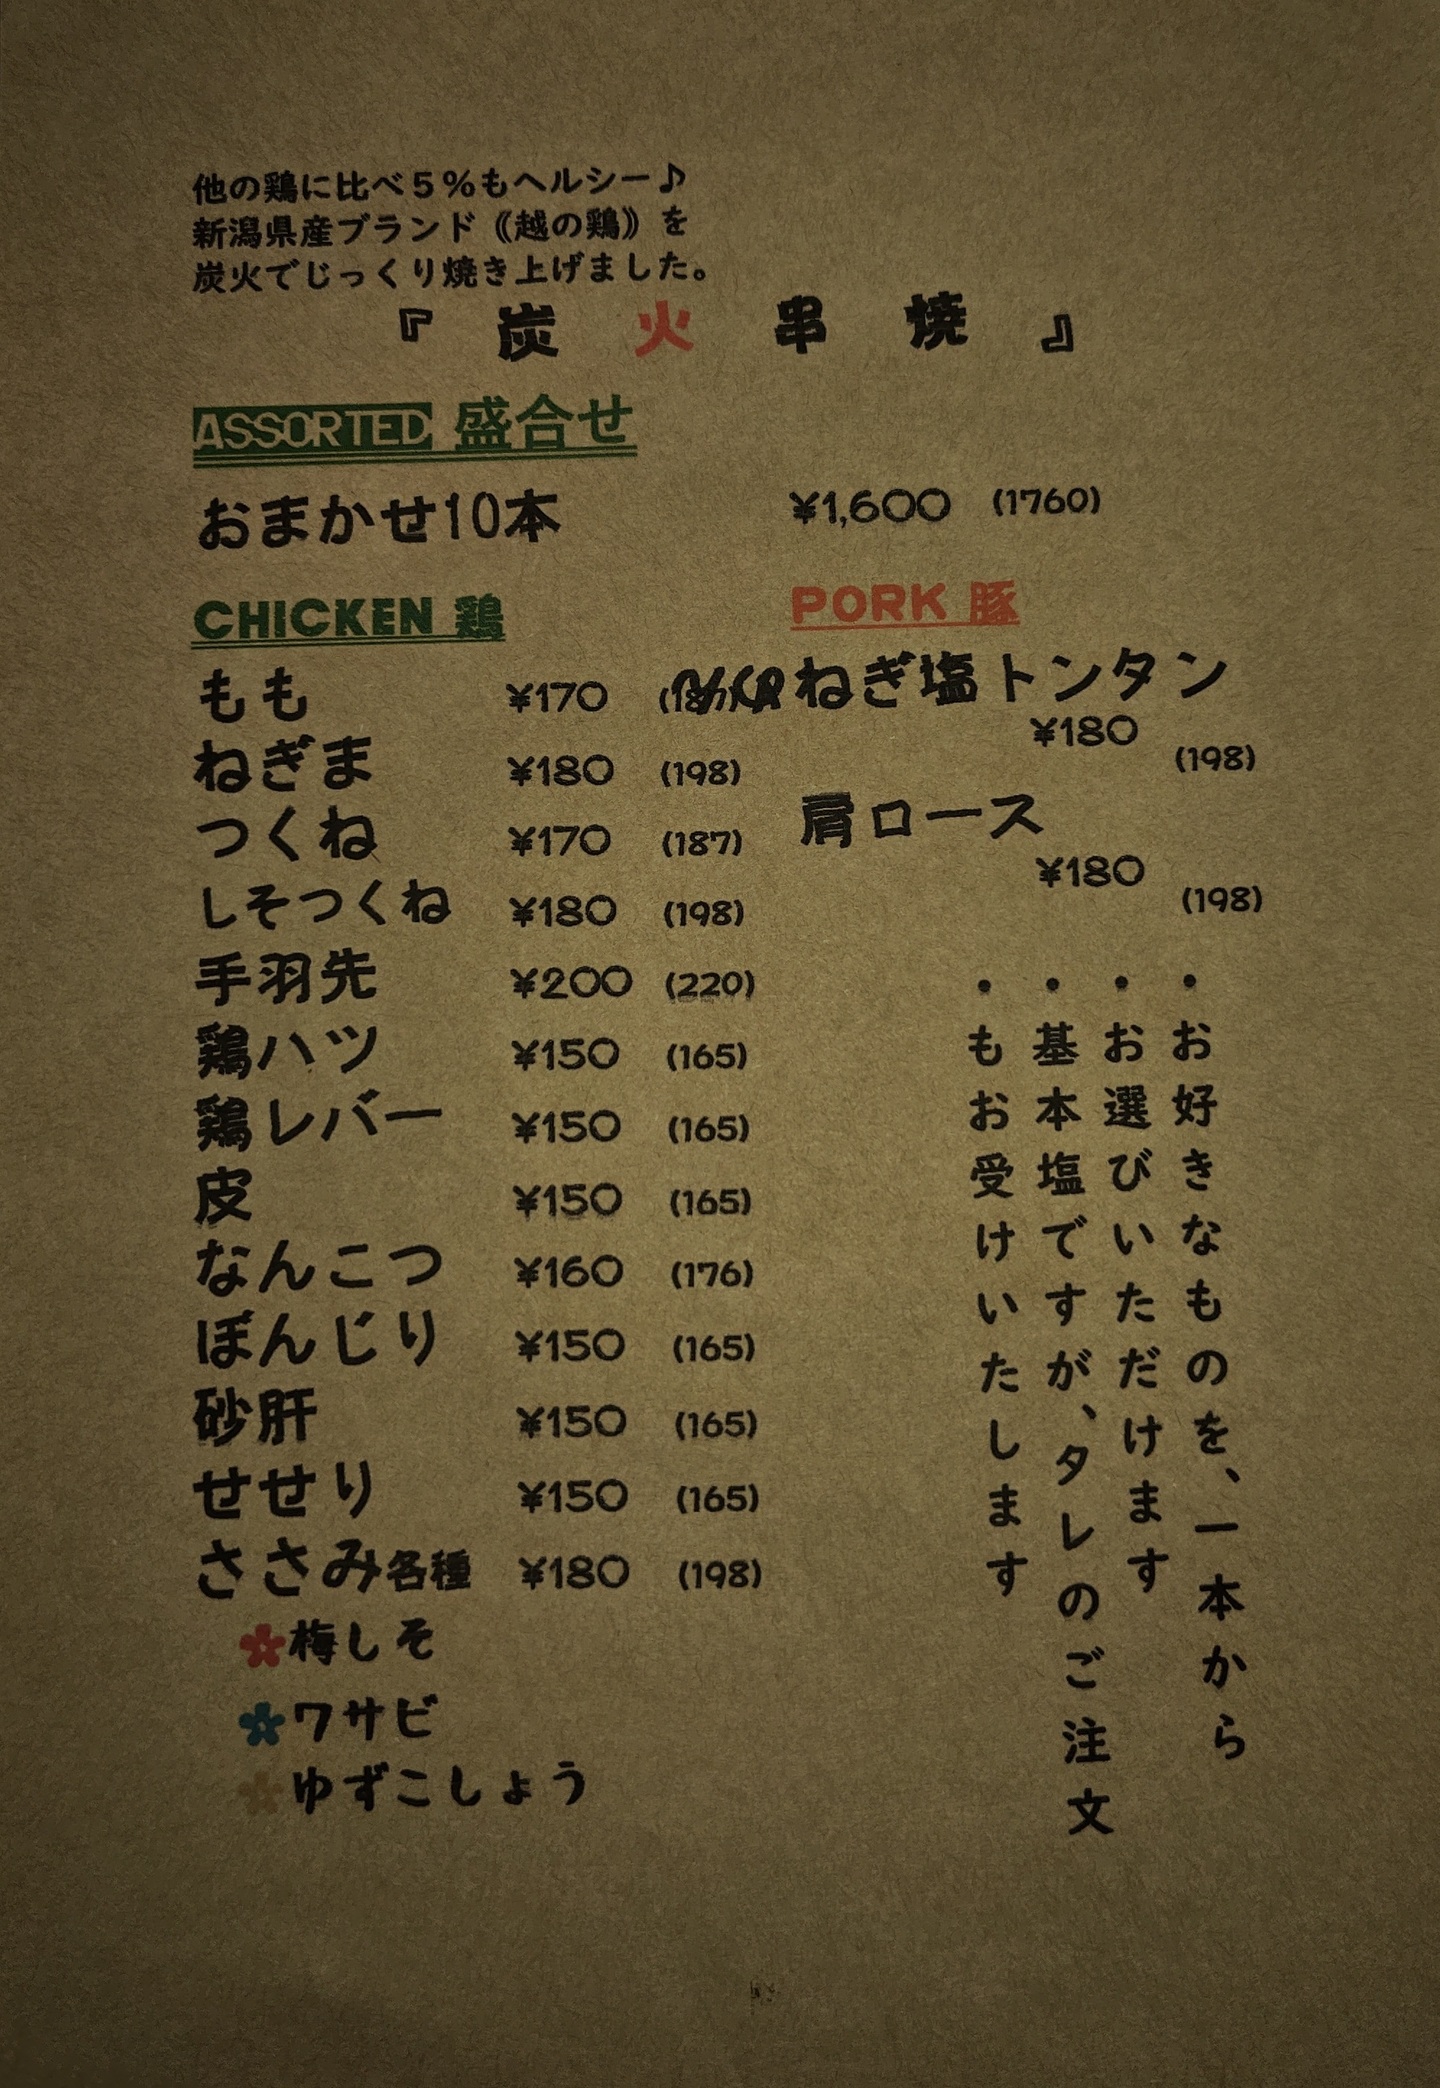 他の鶏に比べ5%もヘルシー♪
新潟県産ブランド《越の鶏》を
炭火でじっくり焼き上げました。
『炭火串焼』
ASSORTED 盛合せ
おまかせ10本 ¥1,600 (1760)
CHICKEN 鶏
もも ¥170
ねぎま ¥180 (198)
つくね ¥170 (187)
しそつくね ¥180 (198)
手羽先 ¥200 (220)
鶏ハツ ¥150 (165)
鶏レバー ¥150 (165)
皮 ¥150 (165)
なんこつ ¥160 (176)
ぼんじり ¥150 (165)
砂肝 ¥150 (165)
せせり ¥150 (165)
ささみ各種 ¥180 (198)
梅しそ
ワサビ
ゆずこしょう
PORK 豚
ねぎ塩トンタン
¥180
(198)
肩ロース
¥180
(198)
・お好きなものを、一本から
・お選びいただけます
・基本塩ですが、タレのご注文
・もお受けいたします